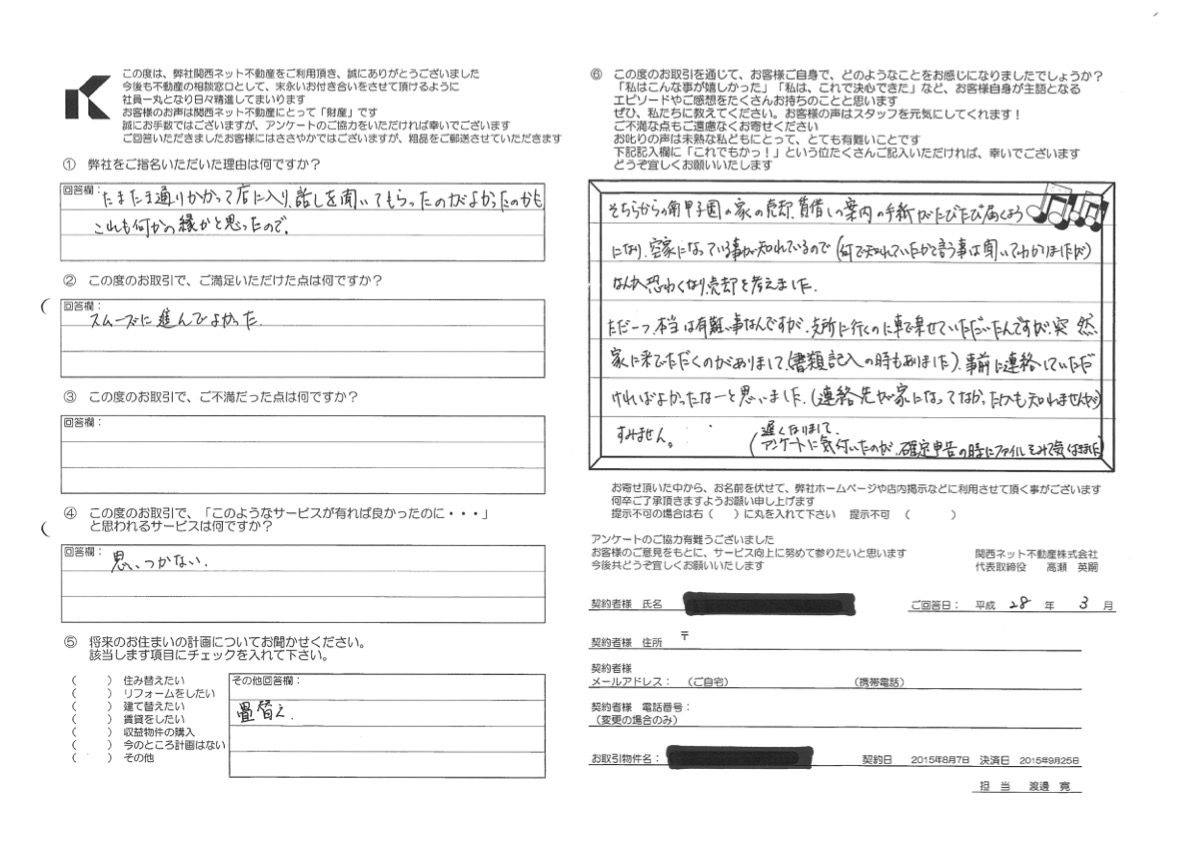 この度は、弊社関西ネット不動産をご利用頂き、誠にありがとうございました
今後も不動産の相談窓口として、末永いお付き合いをさせて頂けるように
社員一丸となり日々精進してまいります
お客様のお声は関西ネット不動産にとって「財産」です
誠にお手数ではございますが、アンケートのご協力をいただければ幸いでございます
ご回答いただきましたお客様にはささやかではございますが、粗品をご郵送させていただきます
① 弊社をご指名いただいた理由は何ですか？
回答欄：たまたま通りかかって店に入り、話しを聞いてもらったのがよかったのかも
これも何かの縁かと思ったので。
② この度のお取引で、ご満足いただけた点は何ですか？
回答欄：
スムーズに進んでよかった.
③ この度のお取引で、ご不満だった点は何ですか？
回答欄：
④ この度のお取引で、「このようなサービスが有れば良かったのに・・・」
と思われるサービスは何ですか？
回答欄：思いつかない.
⑤ 将来のお住まいの計画についてお聞かせください。
該当します項目にチェックを入れて下さい。
（　　）住み替えたい
（　　）リフォームをしたい
（　　）建て替えたい
（　　）賃貸をしたい
（　　）収益物件の購入
（　　）今のところ計画はない
（　　）その他
その他回答欄：
畳替え.
⑥ この度のお取引を通じて、お客様ご自身で、どのようなことをお感じになりましたでしょうか？
「私はこんな事が嬉しかった」「私は、これで決心できた」など、お客様自身が主語となる
エピソードやご感想をたくさんお持ちのことと思います
ぜひ、私たちに教えてください。お客様の声はスタッフを元気にしてくれます！
ご不満な点もご遠慮なくお寄せください
お叱りの声は未熟な私どもにとって、とても有難いことです
下記記入欄に「これでもかっ！」という位たくさんご記入いただければ、幸いでございます
どうぞ宜しくお願いいたします
そちらからの 甲子園の家の売却、賃借しの案内の手紙がたびたび届くよう
になり、空家になっている事が知れているので（何で知れていたかと言う事は聞いてわかりましたが）
なんか恐わくなり、売却を考えました.
ただ一つ、本当は有難い事なんですが、支所に行くのに車で乗せていただいたんですが、突然、
家に来ていただくのがありまして、（書類記入の時もありました）、事前に連絡していただ
ければよかったなーと思いました.（連絡先が家になってなかったかも知れませんが）
すみません。
（遅くなりまして、
アンケートに気付いたのが、確定申告の時にファイルをみて気付きました）
お寄せ頂いた中から、お名前を伏せて、弊社ホームページや店内掲示などに利用させて頂く事がございます
何卒ご了承頂きますようお願い申し上げます
提示不可の場合は右（　　）に丸を入れて下さい　提示不可　（　　　　）
アンケートのご協力有難うございました
お客様のご意見をもとに、サービス向上に努めて参りたいと思います
今後共どうぞ宜しくお願いいたします
関西ネット不動産株式会社
代表取締役　高瀬　英嗣
契約者様　氏名
ご回答日：　平成　28　年　3　月
契約者様　住所　〒
契約者様
メールアドレス：　（ご自宅）　（携帯電話）
契約者様　電話番号：
（変更の場合のみ）
お取引物件名：　契約日　2015年8月7日　決済日　2015年9月25日
担　当　渡邊　寛